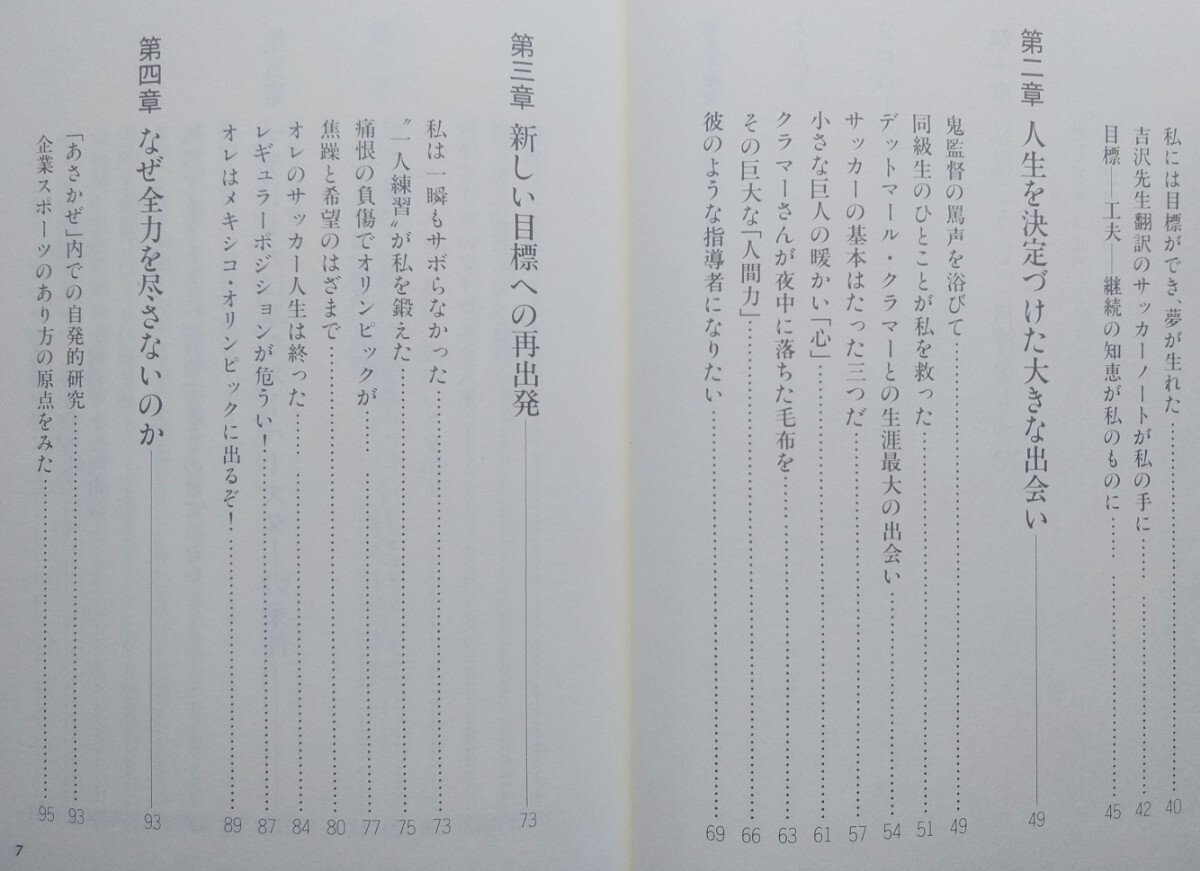 私には目標ができ、夢が生れた……40
吉沢先生翻訳のサッカーノートが私の手に……42
目標――工夫――継続の知恵が私のものに……45
第二章 人生を決定づけた大きな出会い――49
鬼監督の罵声を浴びて……49
同級生のひとことが私を救った……51
デットマール・クラマーとの生涯最大の出会い……54
サッカーの基本はたった三つだ……57
小さな巨人の暖かい「心」……61
クラマーさんが夜中に落ちた毛布を……63
その巨大な「人間力」……66
彼のような指導者になりたい……69
第三章 新しい目標への再出発――73
私は一瞬もサボらなかった……73
〝一人練習〟が私を鍛えた……75
痛恨の負傷でオリンピックが……77
焦躁と希望のはざまで……80
オレのサッカー人生は終った……84
レギュラーポジションが危うい!……87
オレはメキシコ・オリンピックに出るぞ!……89
第四章 なぜ全力を尽さないのか――93
「あさかぜ」内での自発的研究……93
企業スポーツのあり方の原点をみた……95
7